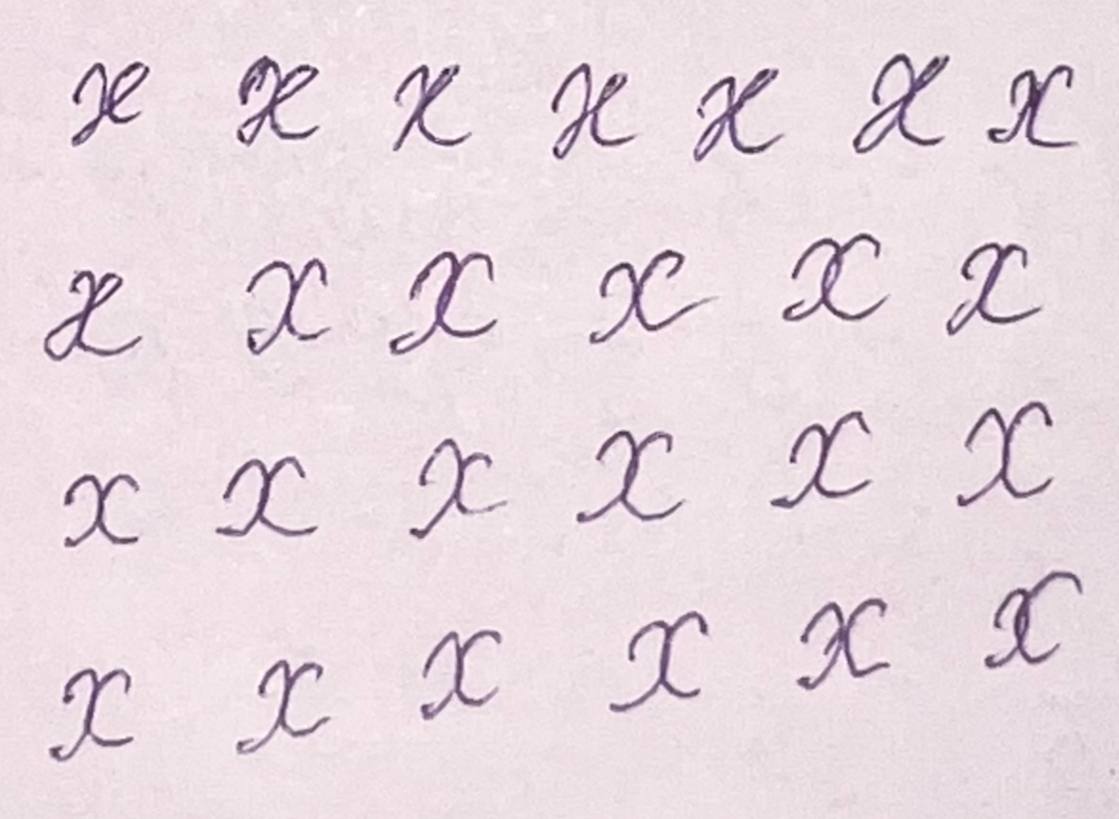 x x x x x x x
x x x x x x
x x x x x x
x x x x x x